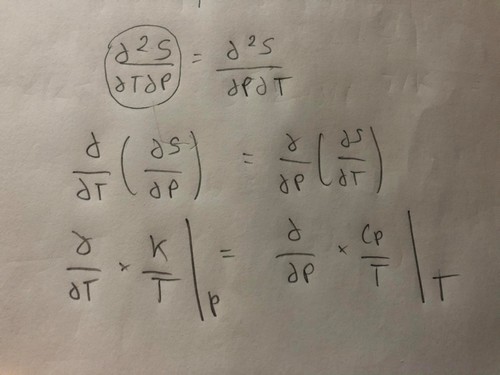 ∂²S/∂T∂P = ∂²S/∂P∂T
∂/∂T (∂S/∂P) = ∂/∂P (∂S/∂T)
∂/∂T × K/T |P = ∂/∂P × CP/T |T